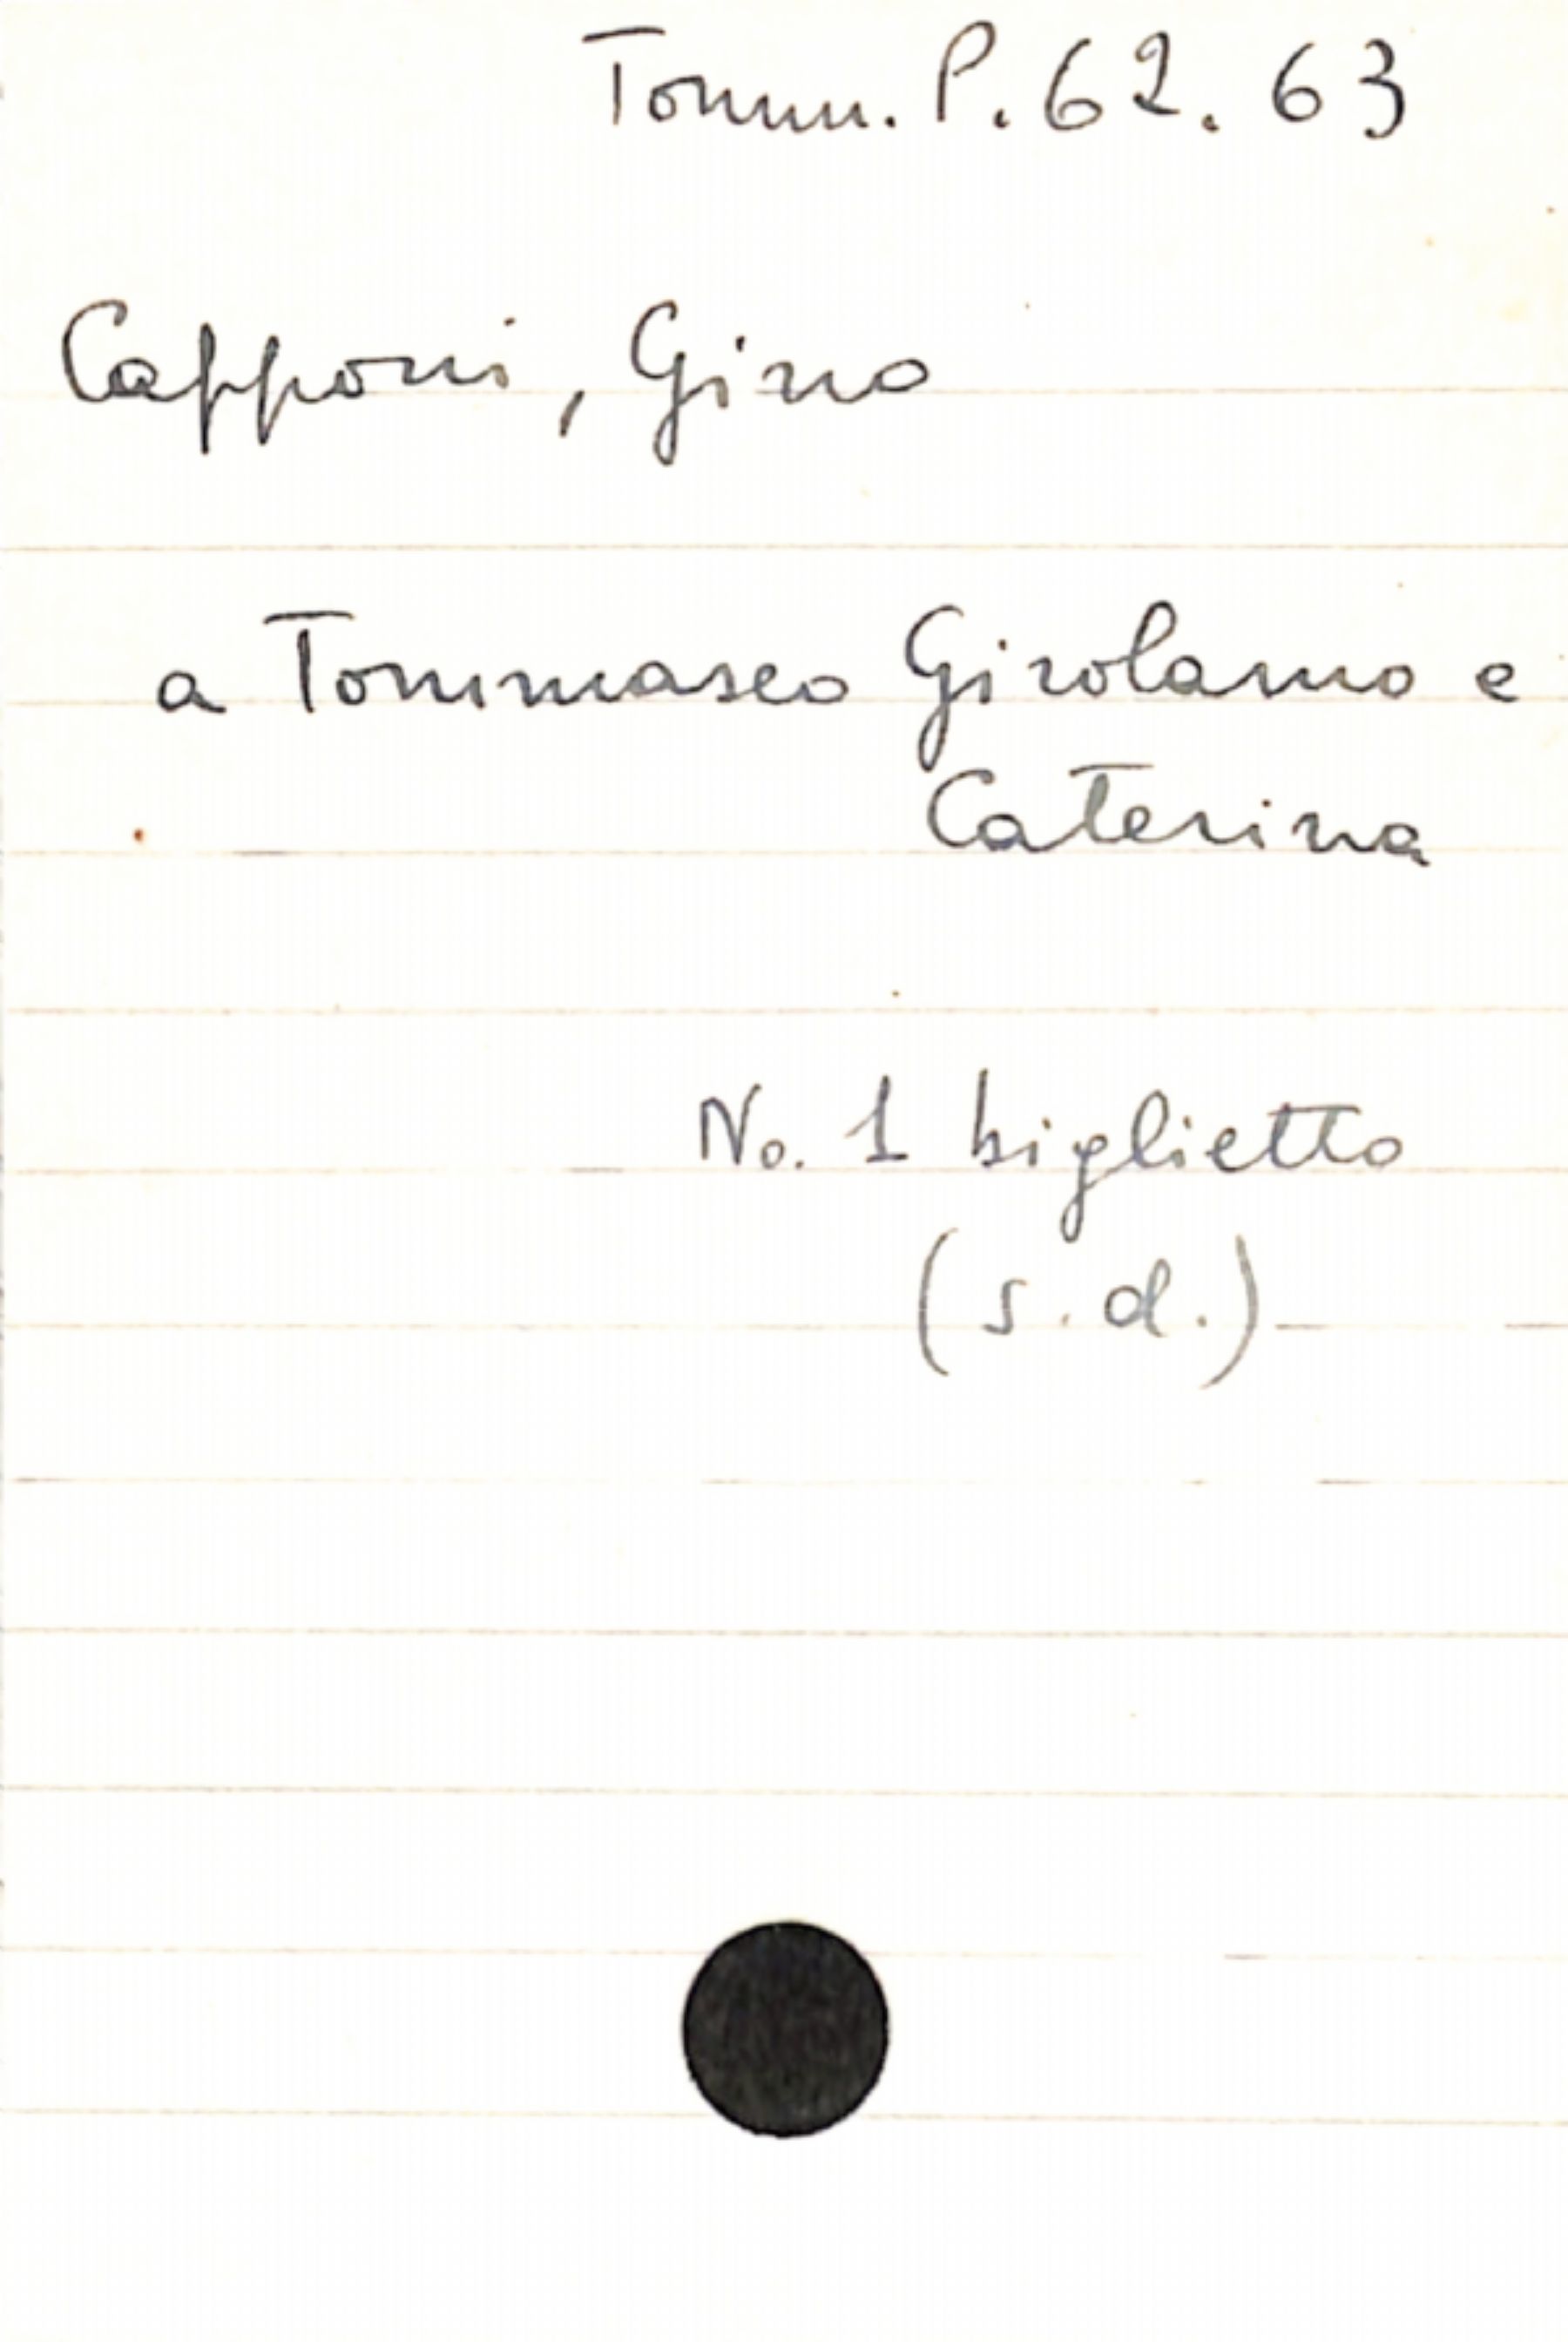 Tomm. P. 62. 63
Capponi, Gino
a Tommaseo Girolamo e
Caterina
No. 1 biglietto
(s. d.)